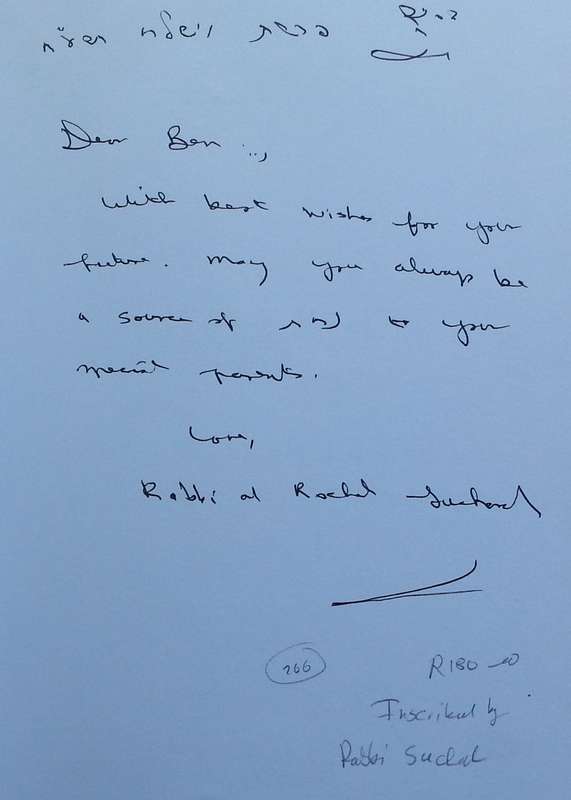 פרשת וישלח
Dear Ben
With best wishes for your
future. May you always be
a source of נחת to your
special parents.
Love,
Rabbi and Rochel Suchard
266
R180
Inscribed by
Rabbi Suchard